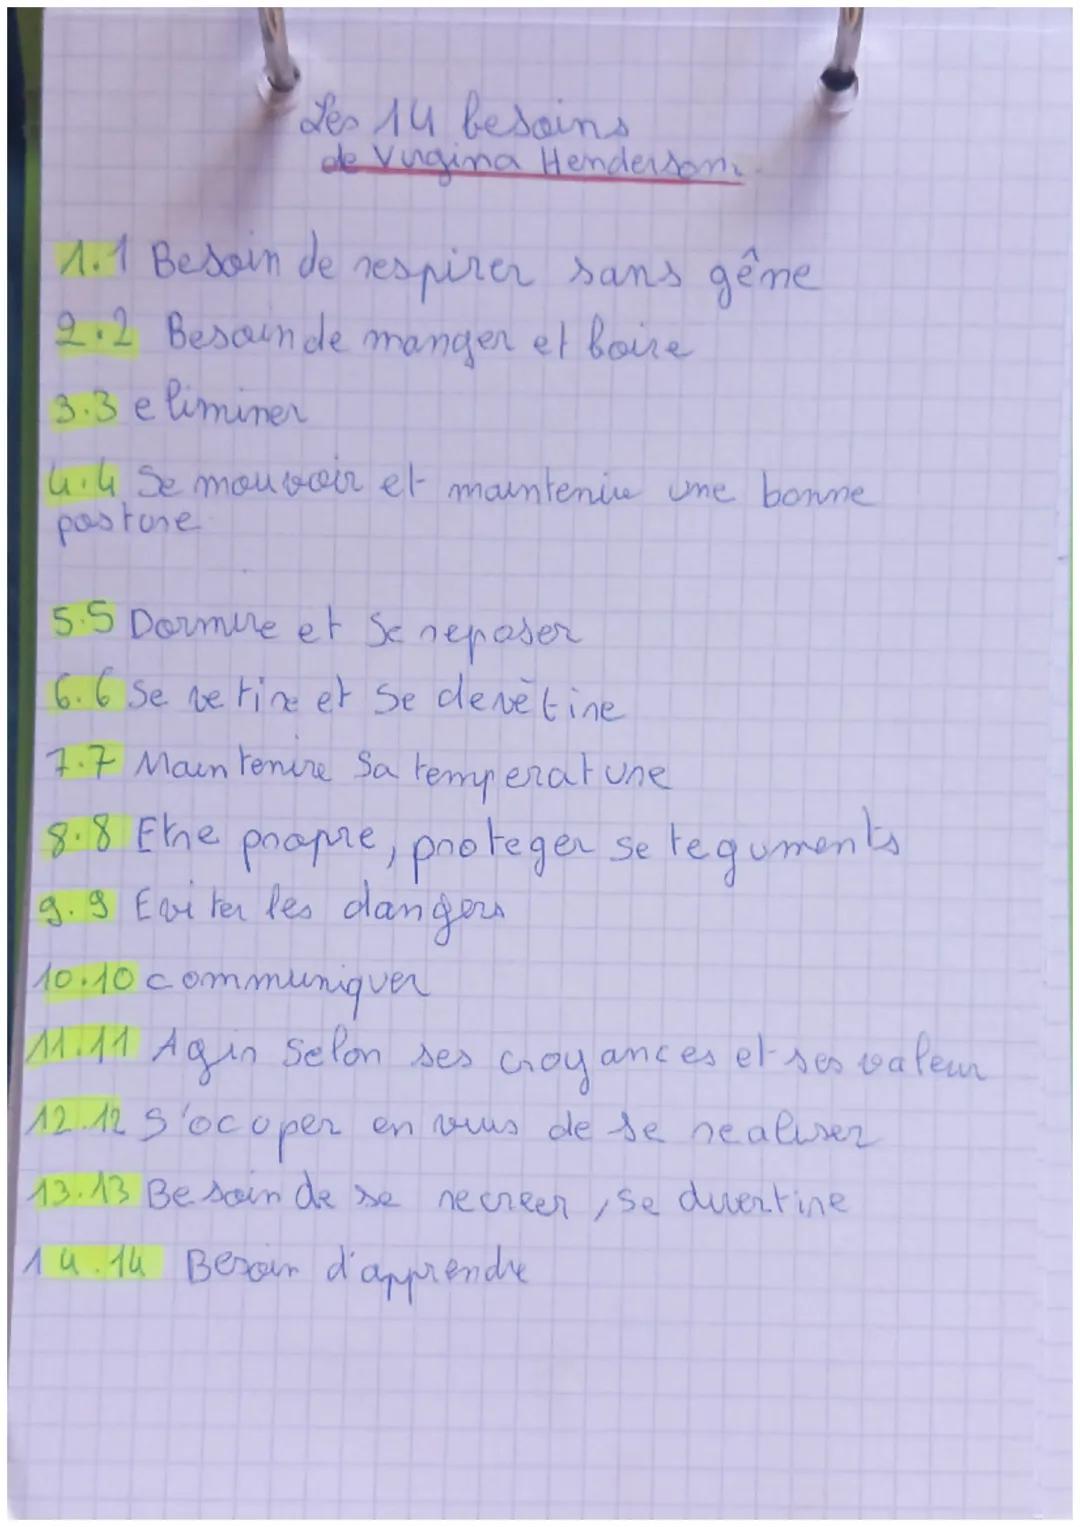 Les 14 besoins
de Virgina Henderson.
1.1 Besoin de respirer sans gêne
2.2 Besoin de manger et boire
3.3 eliminer
4.4 Se mouvoir et maintenir une bonne
posture
5.5 Dormire et Se reposer
6.6 Se vetire et Se devêtire
7.7 Maintenire Sa temperature
8.8 Etre propre, proteger se teguments
9.9 Eviter les dangers
10.10 communiquer
11.11 Agir Selon ses croyances et ses valeur
12.12 S'ocoper en vus de se realiser
13.13 Besoin de se recreer, se divertire
14.14 Besoin d'apprendre